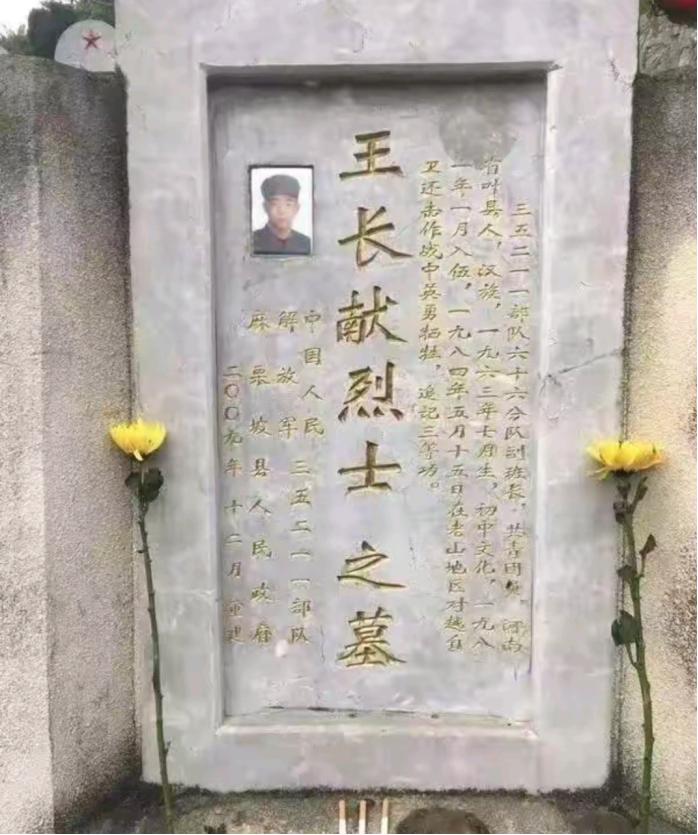 三五二一一部队六十六分队副班长，共青团员，河南
省叶县人，汉族，一九六三年七月生，初中文化，一九八
一年一月入伍，一九八四年五月十五日在老山地区对越自
卫还击作战中英勇牺牲，追记三等功。
王长献烈士之墓
中国人民
解放军
三五二一一部队
麻栗坡县人民政府
二〇〇九年十二月重建